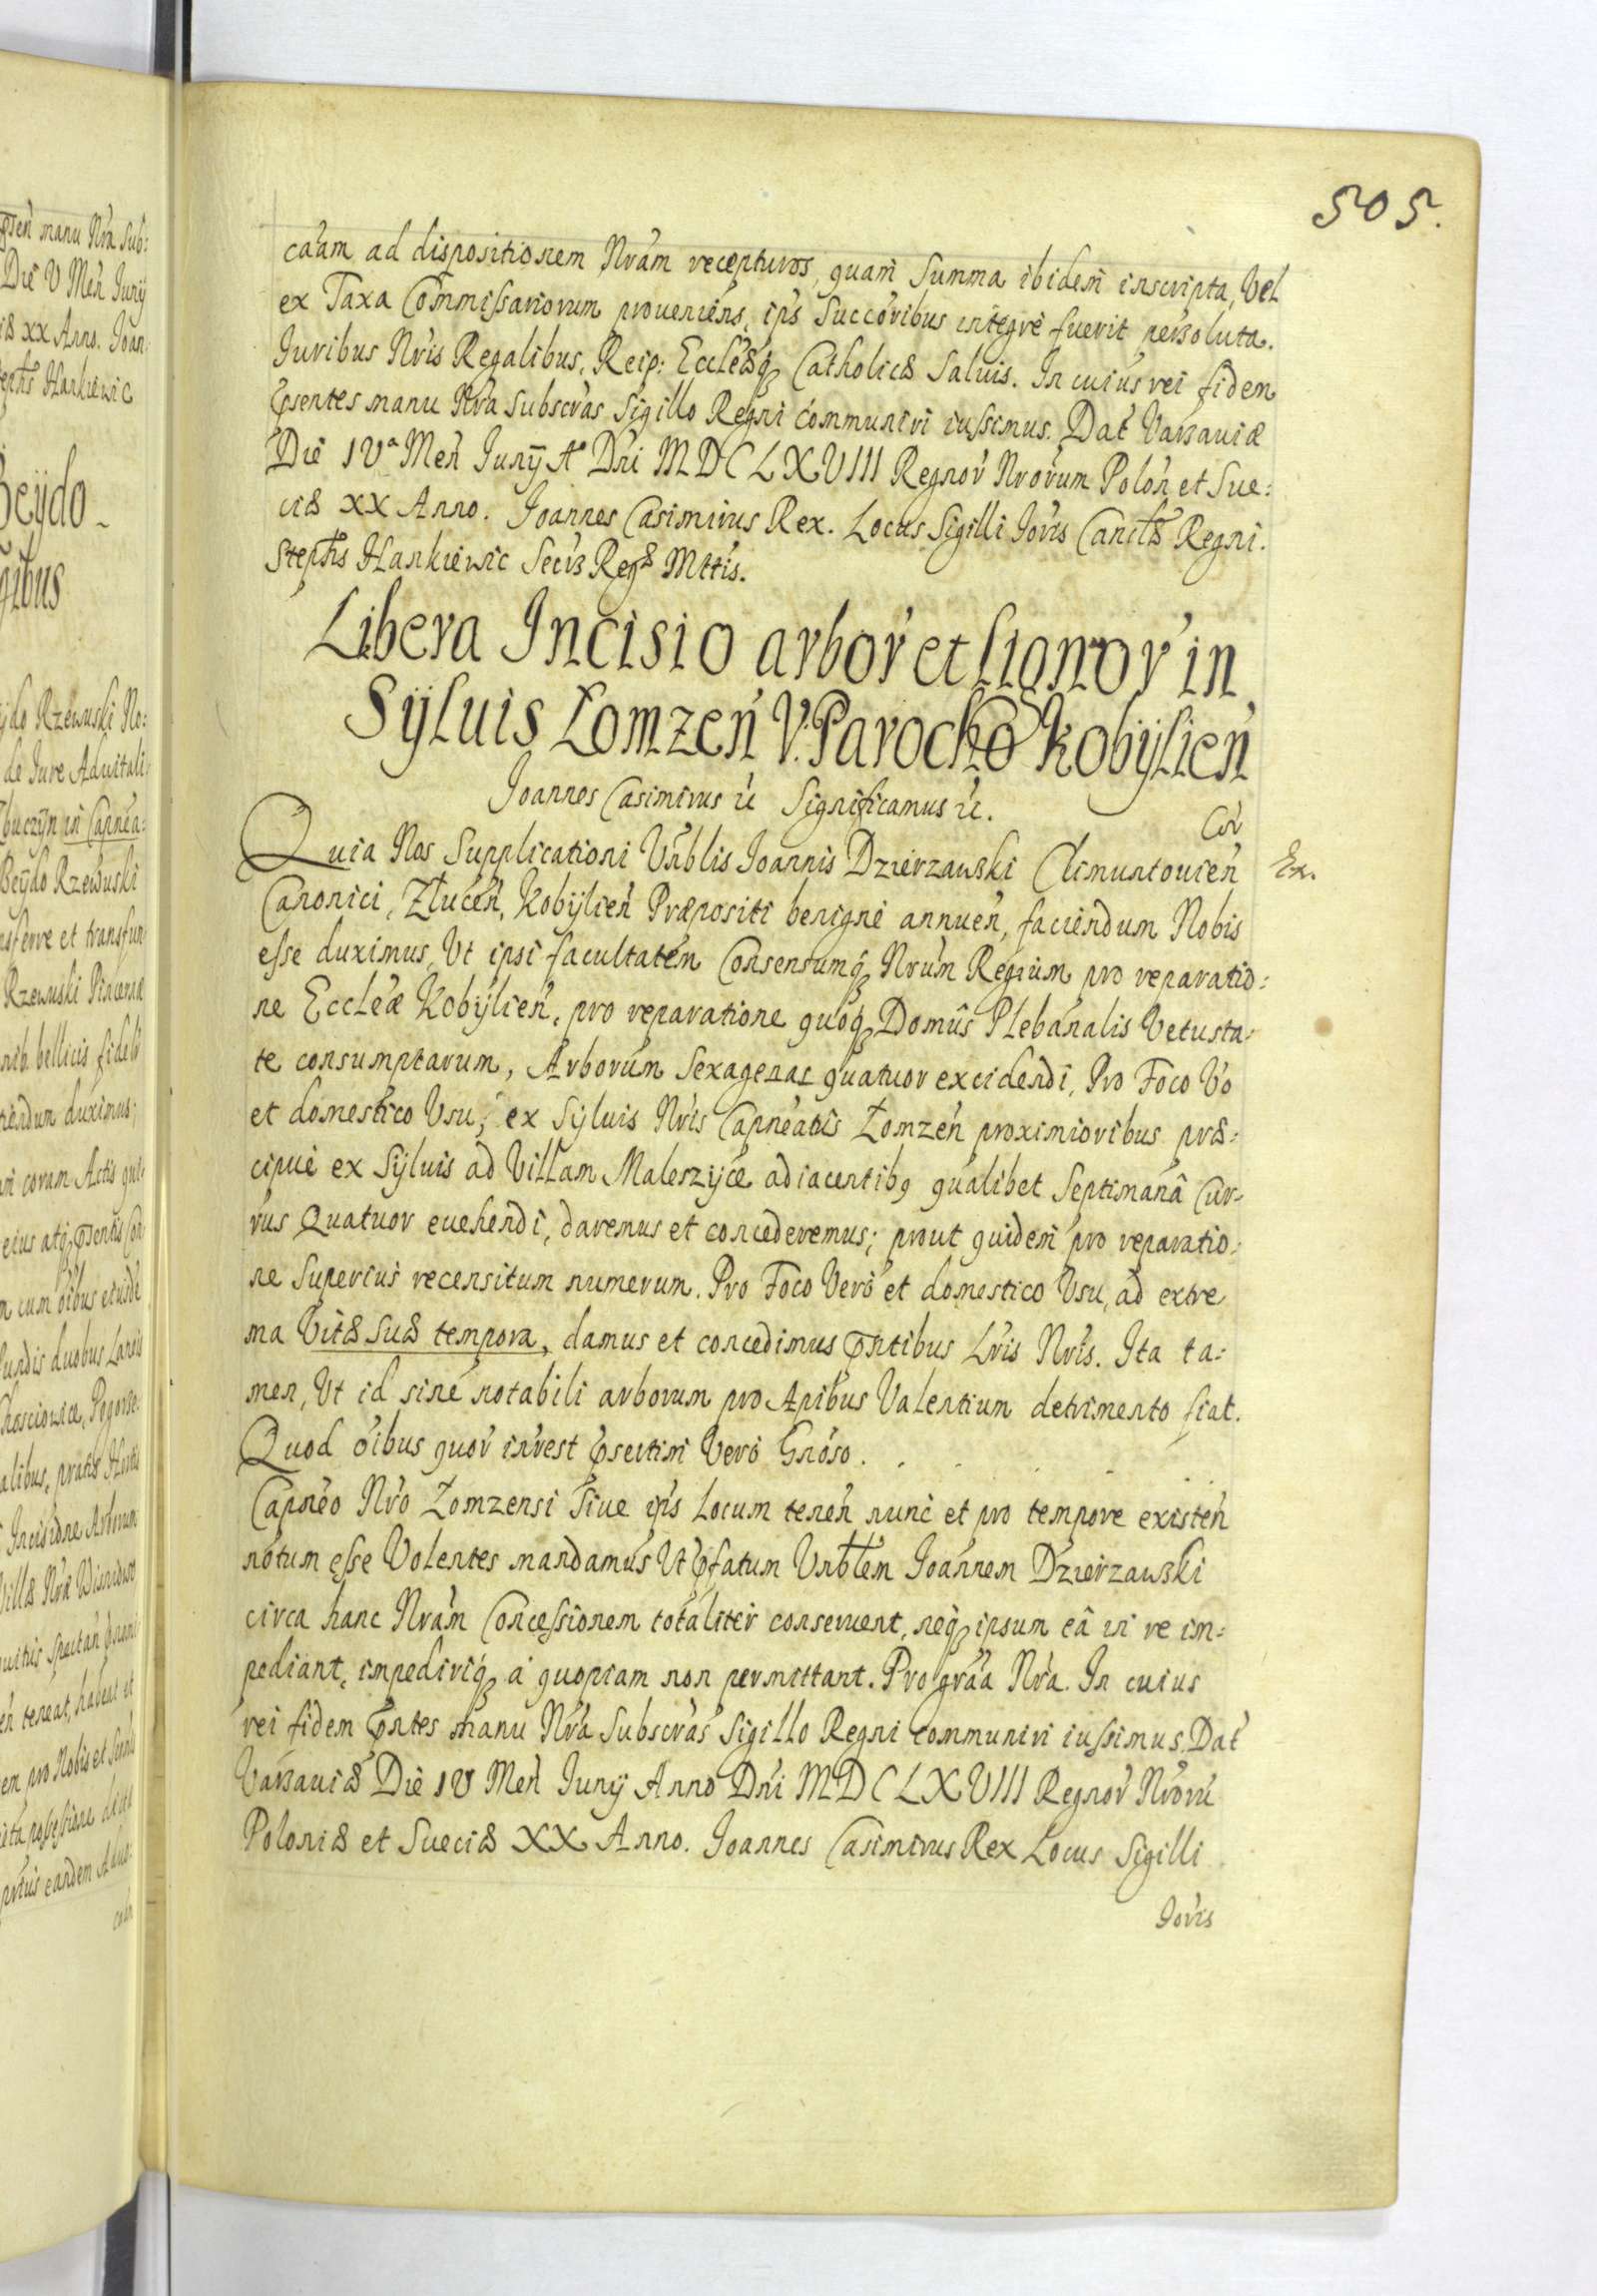 505.
caam ad dispositionem Nram recepturos, quam Summa ibidem inscripta, Vel
ex Taxa Commissariorum proueniens, ips Succoribus integre fuerit persoluta.
Juribus Nris Regalibus, Reip: Eccleæq Catholicæ Saluis. In cuius rei fidem
psentes manu Nra Subscras Sigillo Regni communiri iussimus. Dat Varsauiæ
Die IVa Men Junÿ Ao Dni MDCLXVIII Regnor Nrorum Polon et Sue:
ciæ XX Anno. Joannes Casimirus Rex. Locus Sigilli Joris Cancræ Regni.
Stephs Hankiewic Secrs Regæ Mttis.
Libera Incisio arbor et lignor in
Sÿluis Lomzen V. Parocho Kobÿlien
Joannes Casimirus etc Significamus etc.
Cor
Quia Nos Supplicationi Vnblis Joannis Dzierzawski Climuntouien
Ex.
Canonici, Zlucen, Kobÿlien Præpositi benigne annuen, faciendum Nobis
esse duximus, Vt ipsi facultatem Consensumq Nrum Regium pro reparatio:
ne Eccleæ Kobÿlien, pro reparatione quoq Domûs Plebanalis Vetusta-
te consumptarum, Arborum Sexagenas quatuor excidendi, Pro Foco Vo
et domestico Vsu, ex Sÿluis Nris Capneatis Lomzen proximioribus præ:
cipue ex Sÿluis ad Villam Maleszÿce adiacentibq qualibet Septimanâ Cur-
rus Quatuor euehendi, daremus et concederemus; prout quidem pro reparatio:
ne Superius recensitum numerum. Pro Foco Vero et domestico Vsu, ad extre
ma Vitæ Suæ tempora, damus et concedimus pntibus Lris Nris. Ita ta:
men, Vt id sine notabili arborum pro Apibus Valentium detrimento fiat.
Quod oibus quor intrest psertim Vero Gnoso. . . . . .
Capneo Nro Lomzensi Siue ips Locum tenen nunc et pro tempore existen
notum esse Volentes mandamus Vt pfatum Vnblem Joannem Dzierzawski
circa hanc Nram Concessionem totaliter conseruent, neq ipsum eâ in re im=
pediant, impediriq a quopiam non permittant. Pro graa Nra. In cuius
rei fidem pntes manu Nra Subscras Sigillo Regni communiri iussimus. Dat
Varsauiæ Die IV Men Junÿ Anno Dni MDCLXVIII Regnor Nroru
Poloniæ et Sueciæ XX Anno. Joannes Casimirus Rex Locus Sigilli
Joris